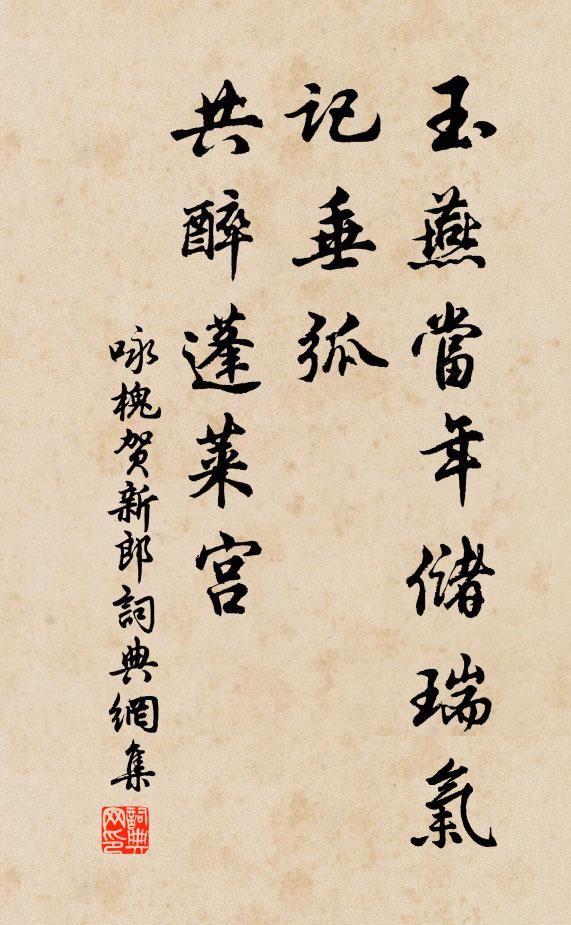 玉燕當年儲瑞氣
記垂弧
共醉蓬萊宮
咏槐贺新郎詞典網集
詞典網印